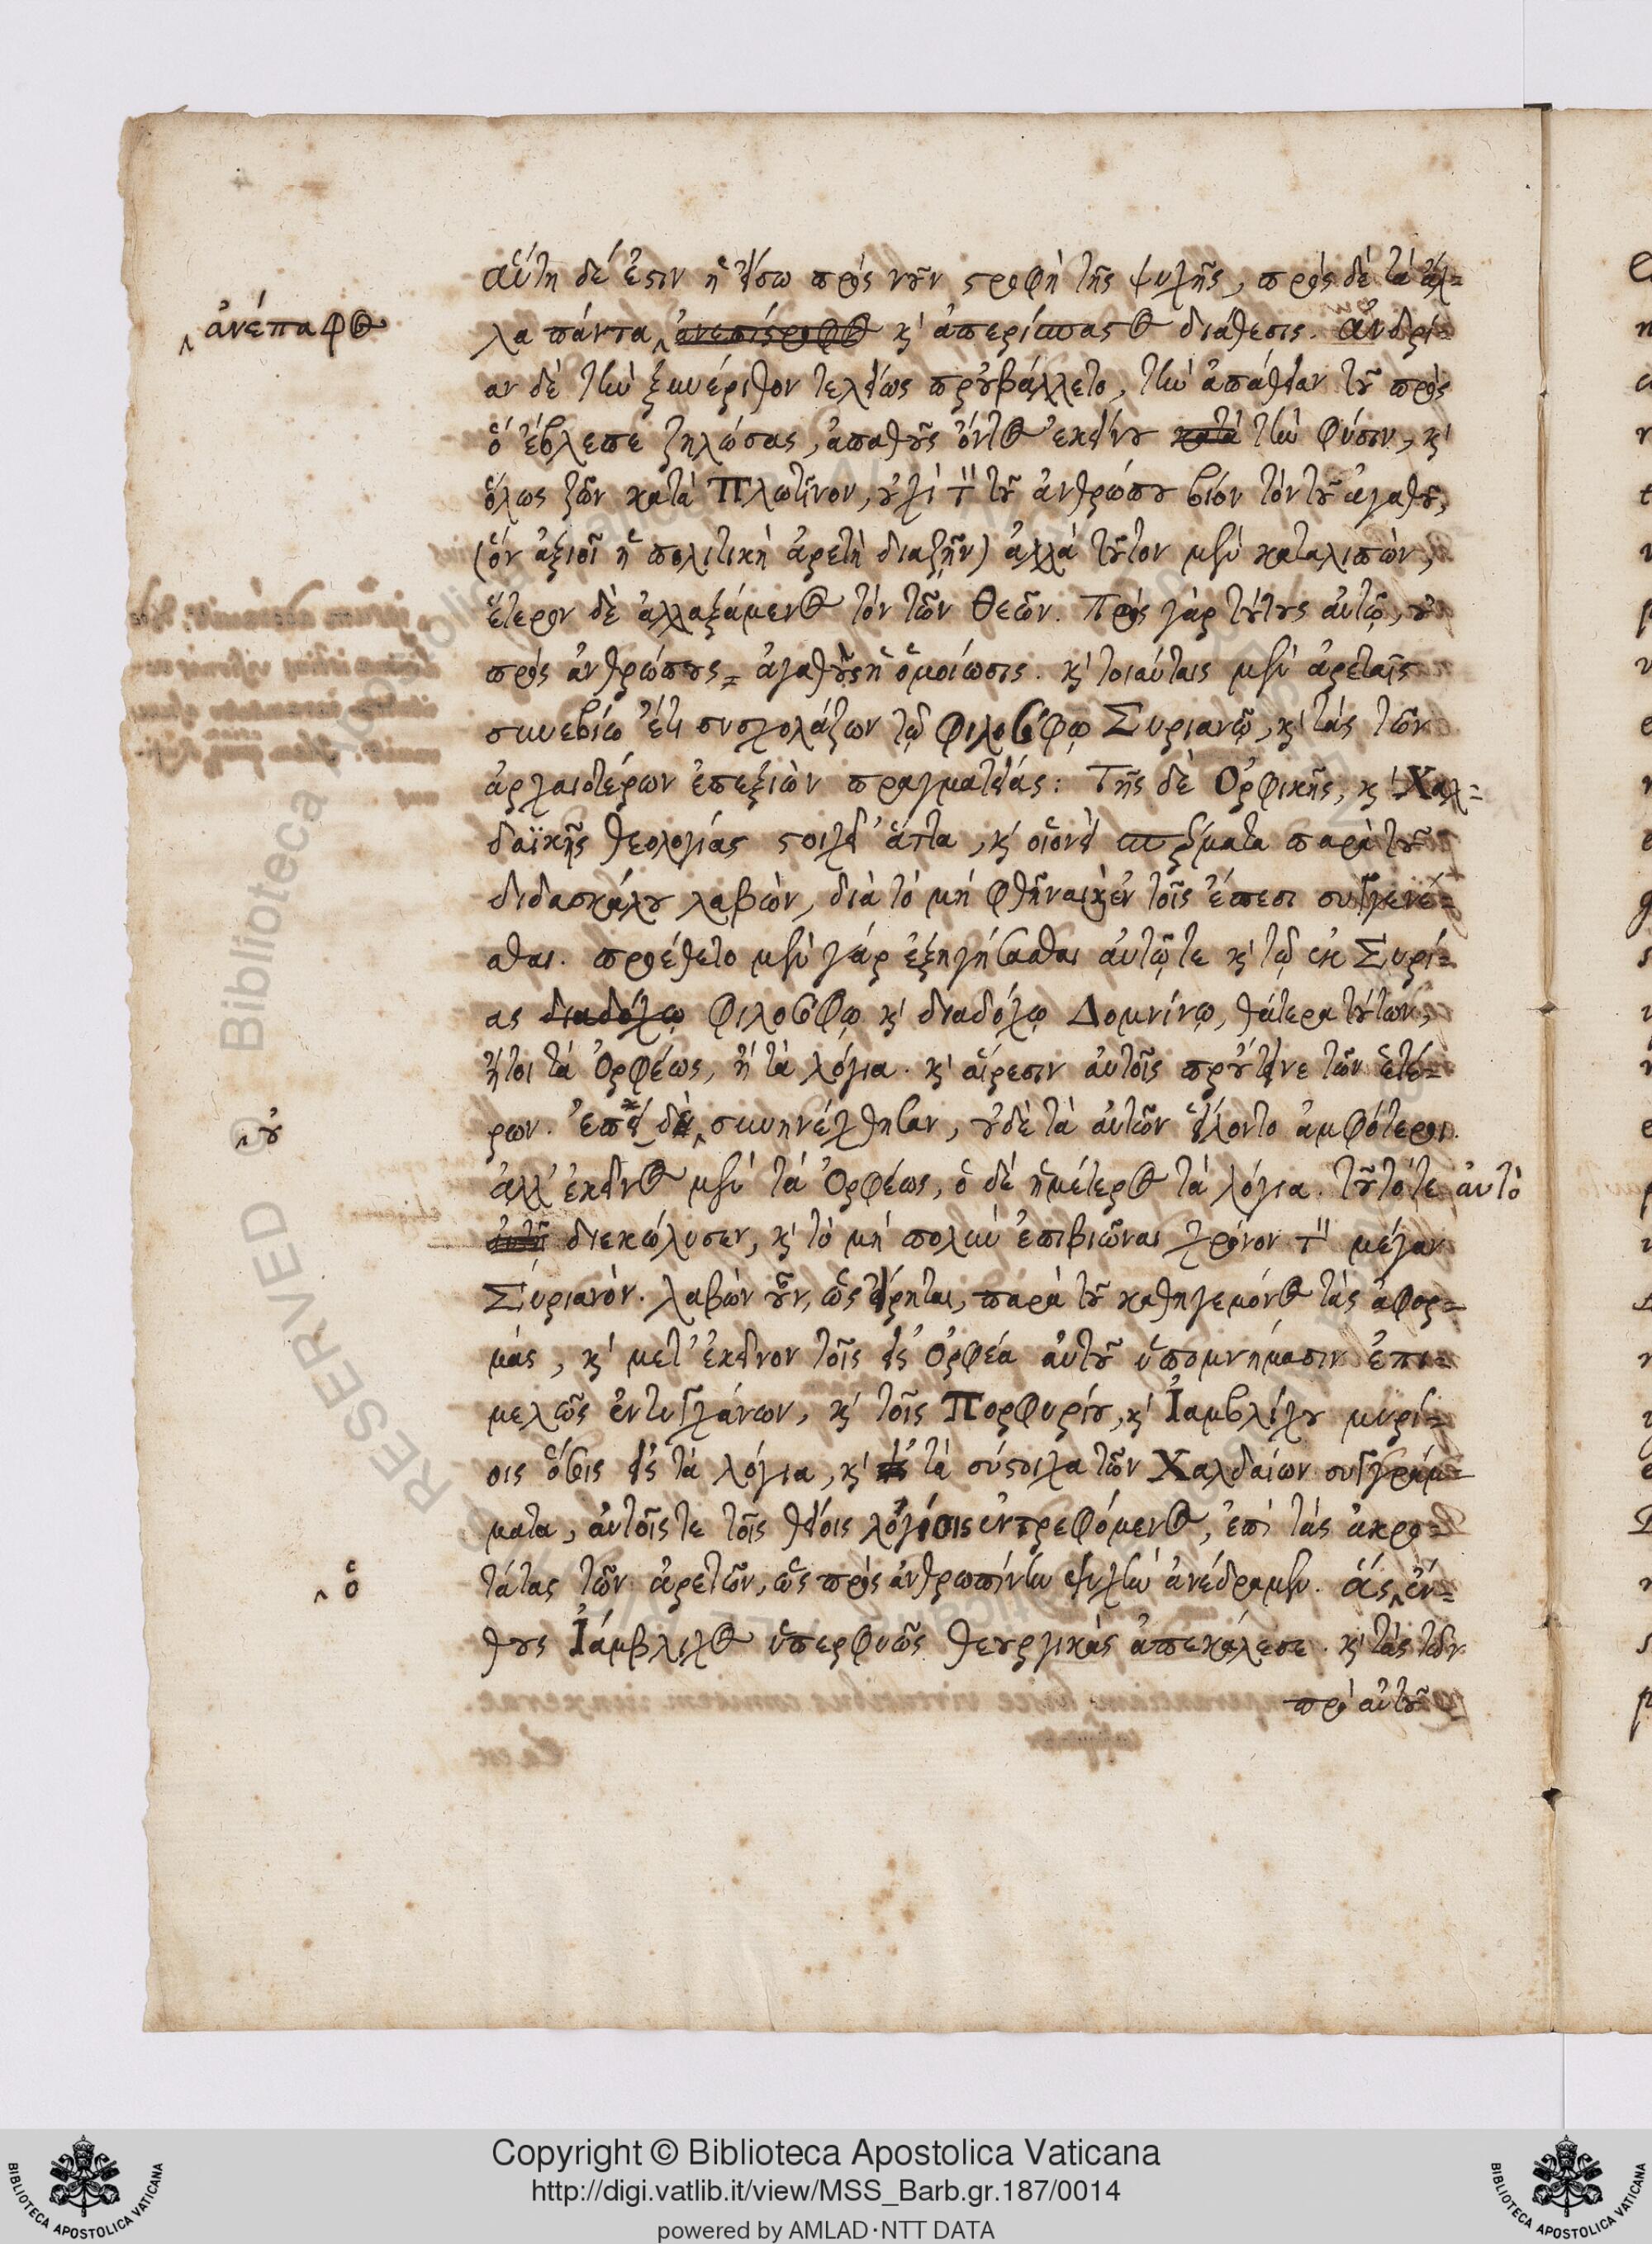 αὕτη δέ ἐστιν ἡ εἴσω πρὸς νοῦν στροφὴ τῆς ψυχῆς, πρὸς δὲ τὰ ἄλ=
ἀνέπαφος
λα πάντα ἀνεπίστροφος κ' ἀπερίσπαστος διάθεσις. ἀνδρί=
αν δὲ τὴν ξυνέριθον τελείως προὐβάλλετο, τὴν ἀπάθειαν τοῦ πρὸς
ὃ ἔβλεπε ζηλώσας, ἀπαθοῦς ὄντος ἐκείνου κατὰ τὴν φύσιν, κ'
ὅλως ζῶν κατὰ Πλωτῖνον, οὐχὶ τὸν τοῦ ἀνθρώπου βίον τὸν τοῦ ἀγαθοῦ,
(ὃν ἀξιοῖ ἡ πολιτικὴ ἀρετὴ διαζῆν) ἀλλὰ τοῦτον μὲν καταλιπὼν,
ἕτερον δὲ ἀλλαξάμενος τὸν τῶν Θεῶν. Πρὸς γὰρ τούτους αὐτῷ, οὐ
πρὸς ἀνθρώπους= ἀγαθοὺς ἡ ὁμοίωσις. κ' τοιαύταις μὲν ἀρεταῖς
συνεβίω ἔτι συσχολάζων τῷ φιλοσόφῳ Συριανῷ, κ' τὰς τῶν
ἀρχαιοτέρων ἐπεξιὼν πραγματείας: Τῆς δὲ Ὀρφικῆς, κ' Χαλ=
δαϊκῆς θεολογίας στοιχεῖ' ἄττα, κ' οἱονεὶ σπέρματα παρὰ τοῦ
διδασκάλου λαβὼν, διὰ τὸ μὴ φθῆναι κ' ἐν τοῖς ἔπεσι συγγενέ=
σθαι. προέθετο μὲν γὰρ ἐξηγήσασθαι αὐτῷ τε κ' τῷ ἐκ Συρί=
ας διαδόχῳ φιλοσόφῳ κ' διαδόχῳ Δομνίνῳ, θάτερα τούτων,
ἤτοι τὰ Ὀρφέως, ἢ τὰ λόγια. κ' αἵρεσιν αὐτοῖς προὔτεινε τῶν ἑτέ=
οὐ
ρων. ἐπεὶ δὲ συνηνέχθησαν, οὐδὲ τὰ αὐτῶν εἵλοντο ἀμφότεροι.
ἀλλ' ἐκεῖνος μὲν τὰ Ὀρφέως, ὁ δὲ ἡμέτερος τὰ λόγια. τοῦτό τε αὐτὸ
διεκώλυσεν, κ' τὸ μὴ πολὺν ἐπιβιῶναι χρόνον τὸν μέγαν
Συριανόν. λαβὼν οὖν, ὡς εἴρηται, παρὰ τοῦ καθηγεμόνος τὰς ἀφορ=
μὰς, κ' μετ' ἐκεῖνον τοῖς εἰς Ὀρφέα αὐτοῦ ὑπομνήμασιν ἐπι=
μελῶς ἐντυγχάνων, κ' τοῖς Πορφυρίου, κ' Ἰαμβλίχου μυρί=
οις ὅσοις εἰς τὰ λόγια, κ' τὰ σύστοιχα τῶν Χαλδαίων συγγράμ=
ματα, αὐτοῖς τε τοῖς θείοις λογίοις ἐντρεφόμενος, ἐπὶ τὰς ἀκρο=
ὁ
τάτας τῶν ἀρετῶν, ὡς πρὸς ἀνθρωπίνην ψυχὴν ἀνέδραμεν. ἃς ἔν=
θους Ἰάμβλιχος ὑπερφυῶς θεουργικὰς ἀπεκάλεσε. κ' τὰς τῶν
πρὸ αὐτοῦ
RESERVED © Biblioteca Apostolica Vaticana
Copyright © Biblioteca Apostolica Vaticana
http://digi.vatlib.it/view/MSS_Barb.gr.187/0014
powered by AMLAD·NTT DATA
BIBLIOTECA APOSTOLICA VATICANA
BIBLIOTECA APOSTOLICA VATICANA